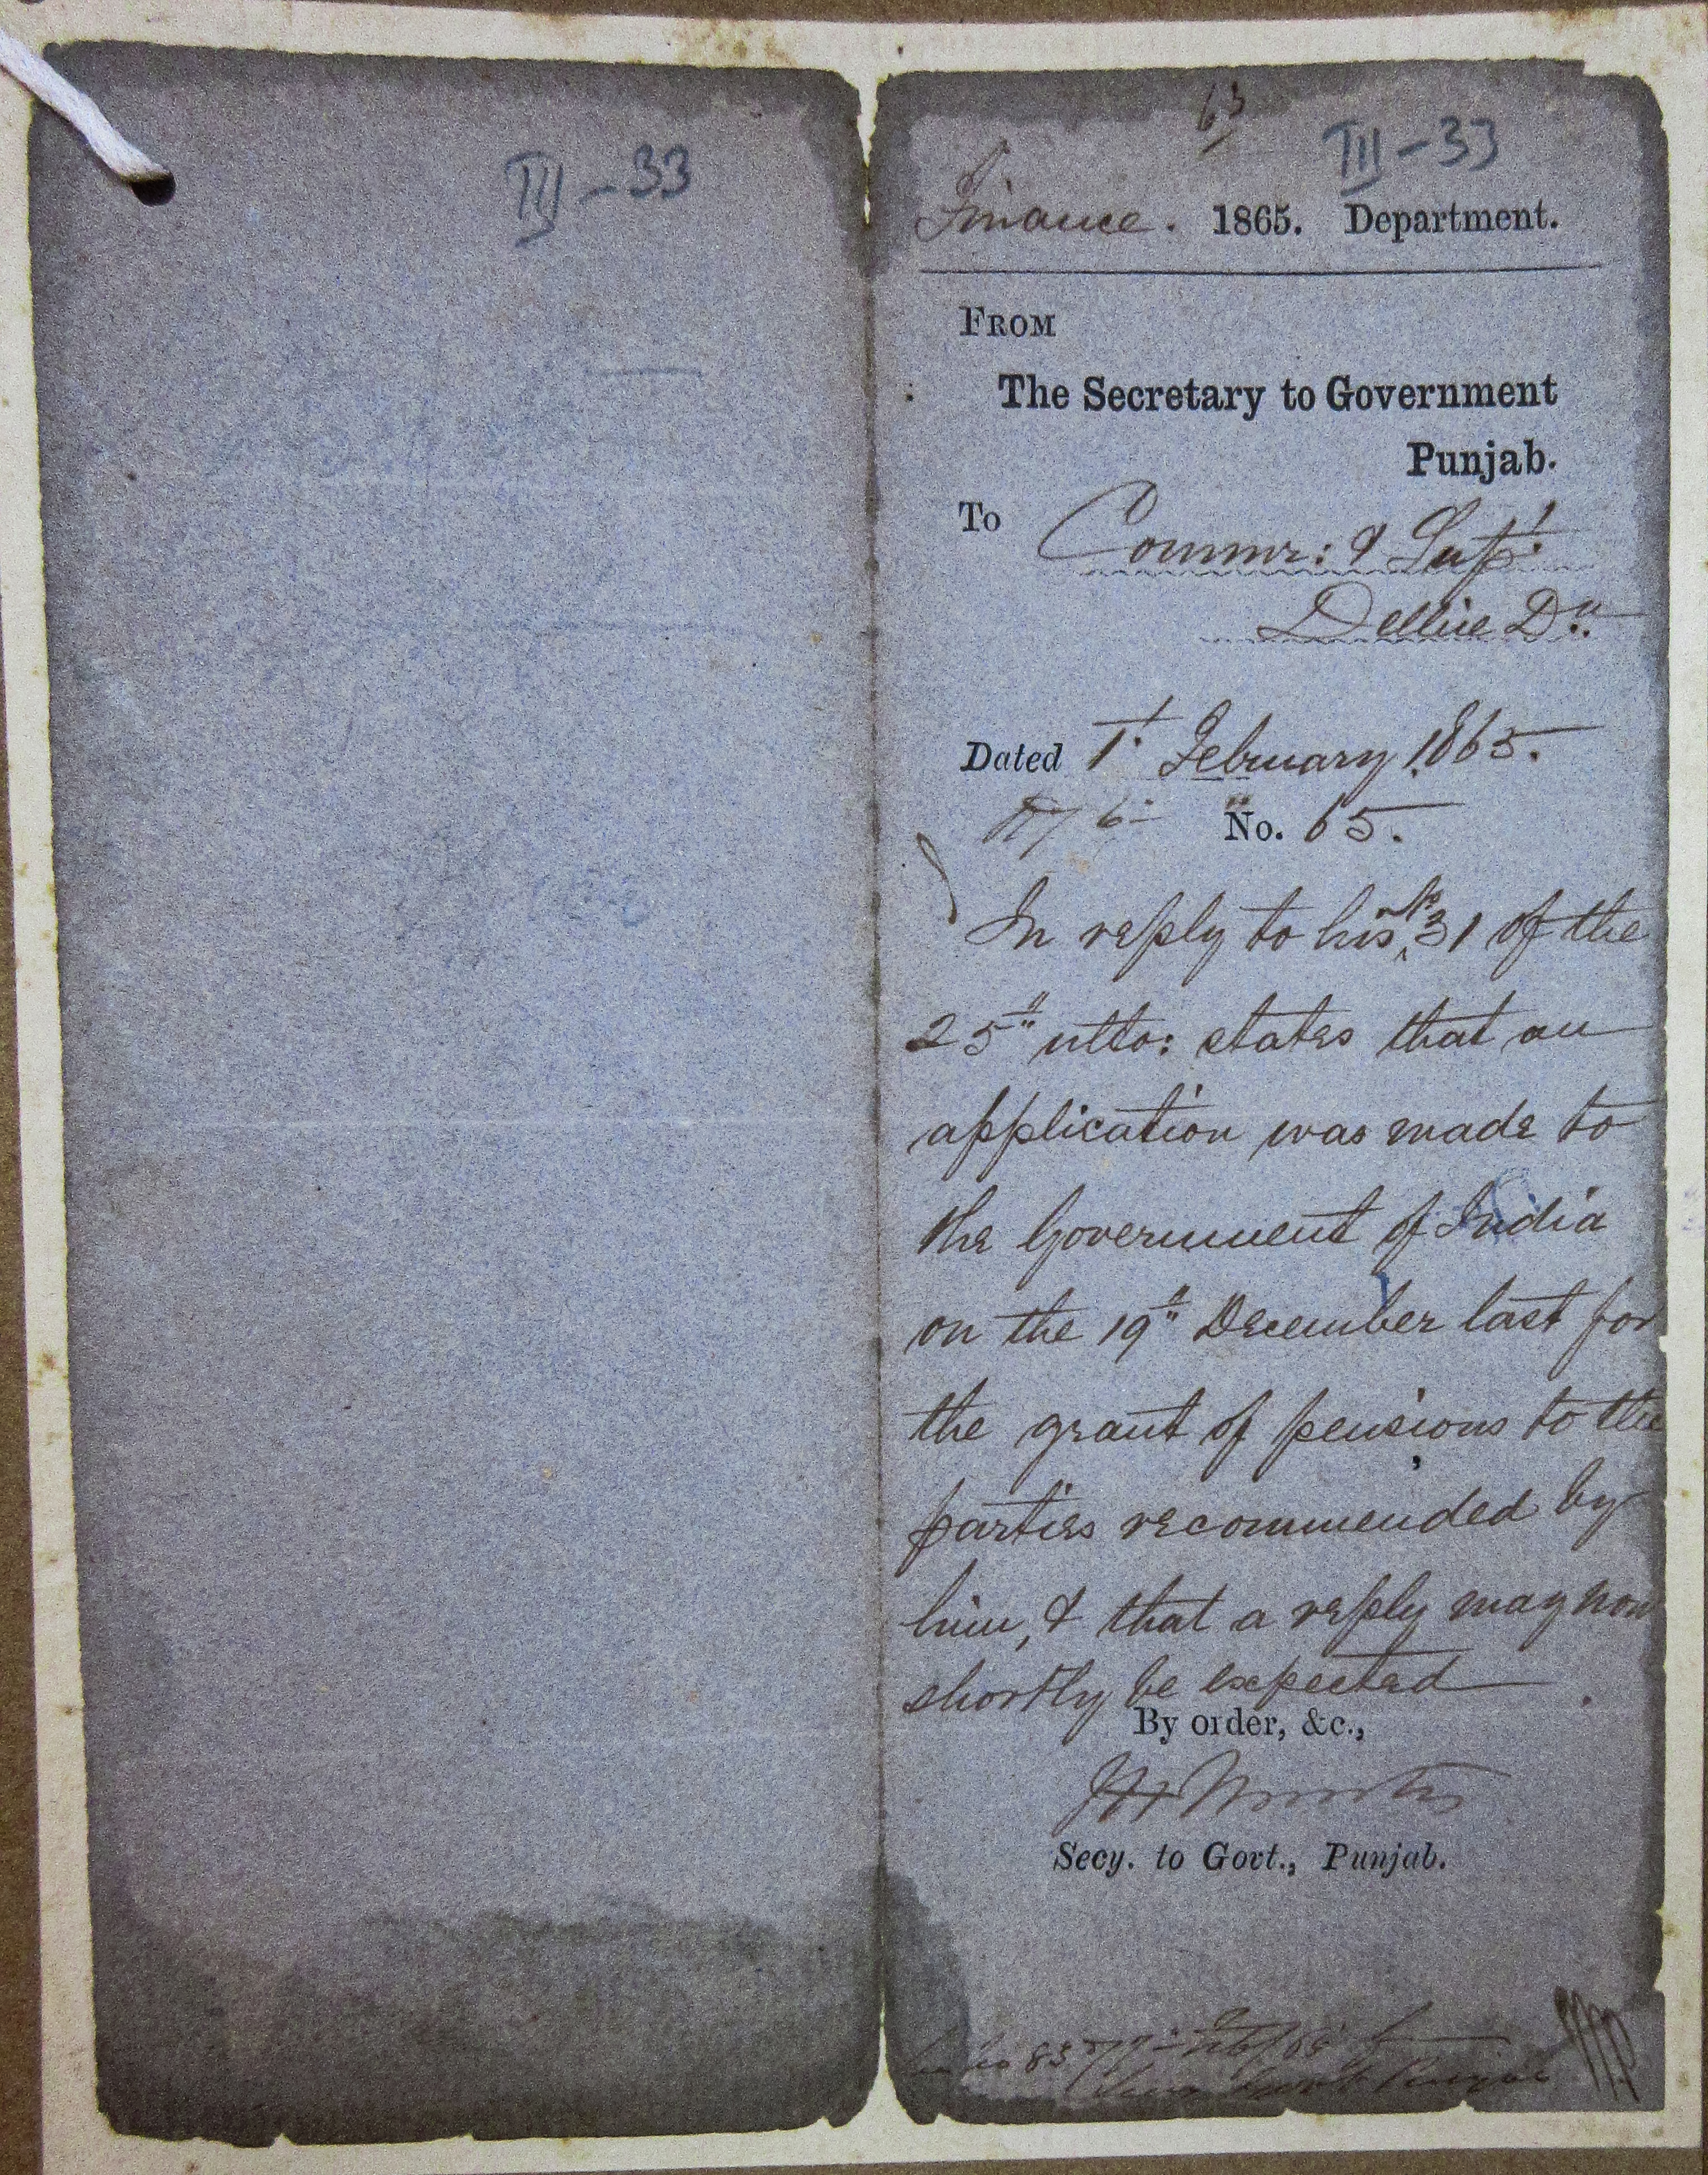 III - 33
63
III - 33
Finance. 1865. Department.
FROM
The Secretary to Government
Punjab.
To Commr: & Supt:
Delhie Dn.
Dated 1t. February 1865.
No. 65.
In reply to his No 31 of the
25th ulto: states that an
application was made to
the Government of India
on the 19th December last for
the grant of pensions to the
parties recommended by
him, & that a reply may now
shortly be expected
By order, &c.,
Secy. to Govt., Punjab.